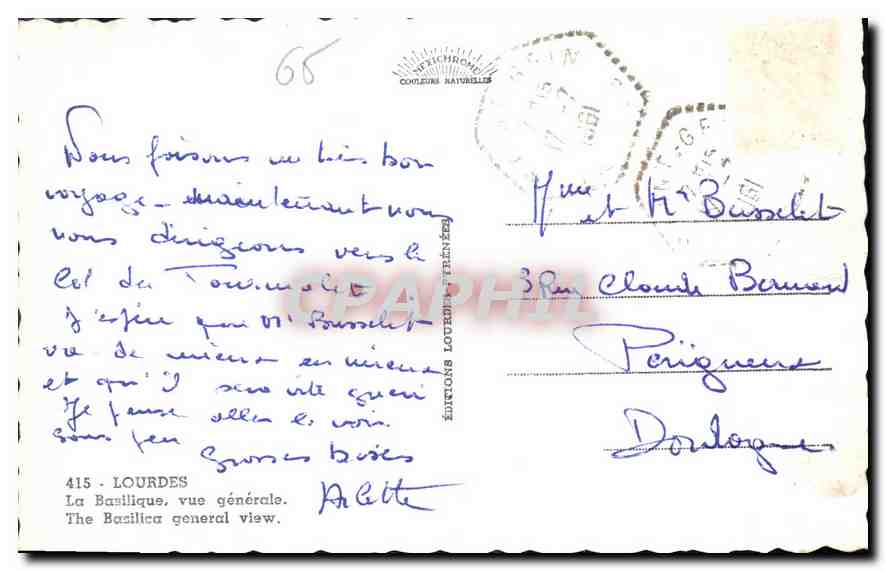 65
MEXICHROME
COULEURS NATURELLES
Nous faisons un très bon
voyage - maintenant nous
nous dirigeons vers le
Col du Tourmalet
J'espère que Mr Busselet
va de mieux en mieux
et qu'il sera vite guéri
Je pense aller le voir
sous peu
Grosses bises
Arlette
415 - LOURDES
La Basilique, vue générale.
The Basilica general view.
ÉDITIONS LOURDES-PYRÉNÉES
CPAPHIL
1961
Mme et Mr Busselet
3 Rue Claude Bernard
Périgueux
Dordogne